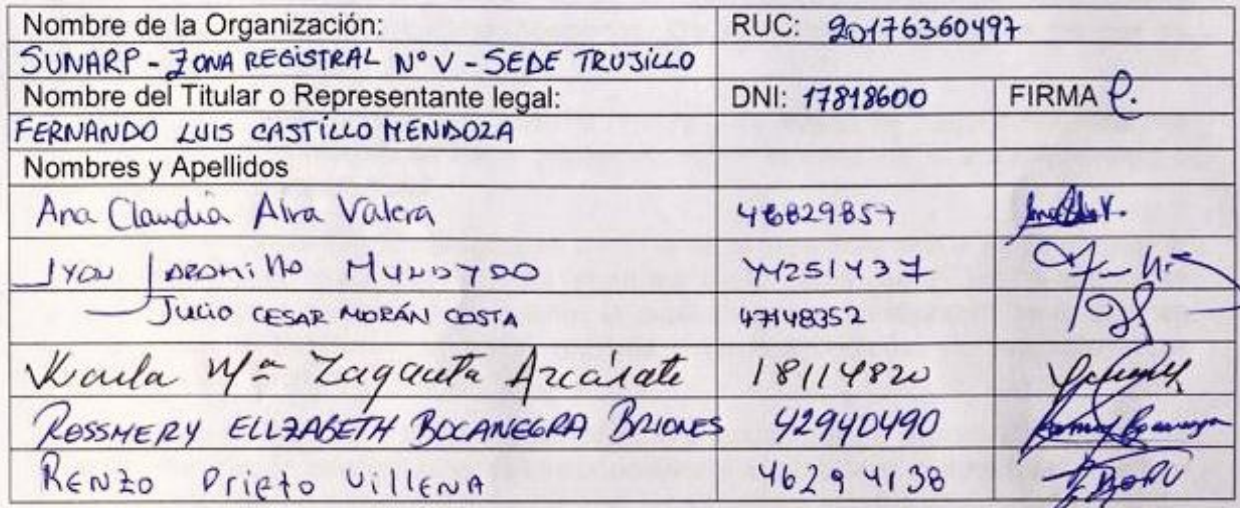 Nombre de la Organización: RUC: 20176360497
SUNARP - ZONA REGISTRAL N° V - SEDE TRUJILLO
Nombre del Titular o Representante legal: DNI: 17818600 FIRMA
FERNANDO LUIS CASTILLO MENDOZA
Nombres y Apellidos
Ana Claudia Alva Valera 46829857
Jaramillo 44251437
JULIO CESAR MORÁN COSTA 47148352
Karla Mª Zagaceta Azcárate 18114820
ROSSMERY ELIZABETH BOCANEGRA BRIONES 42940490
RENZO Prieto VILLENA 46294138